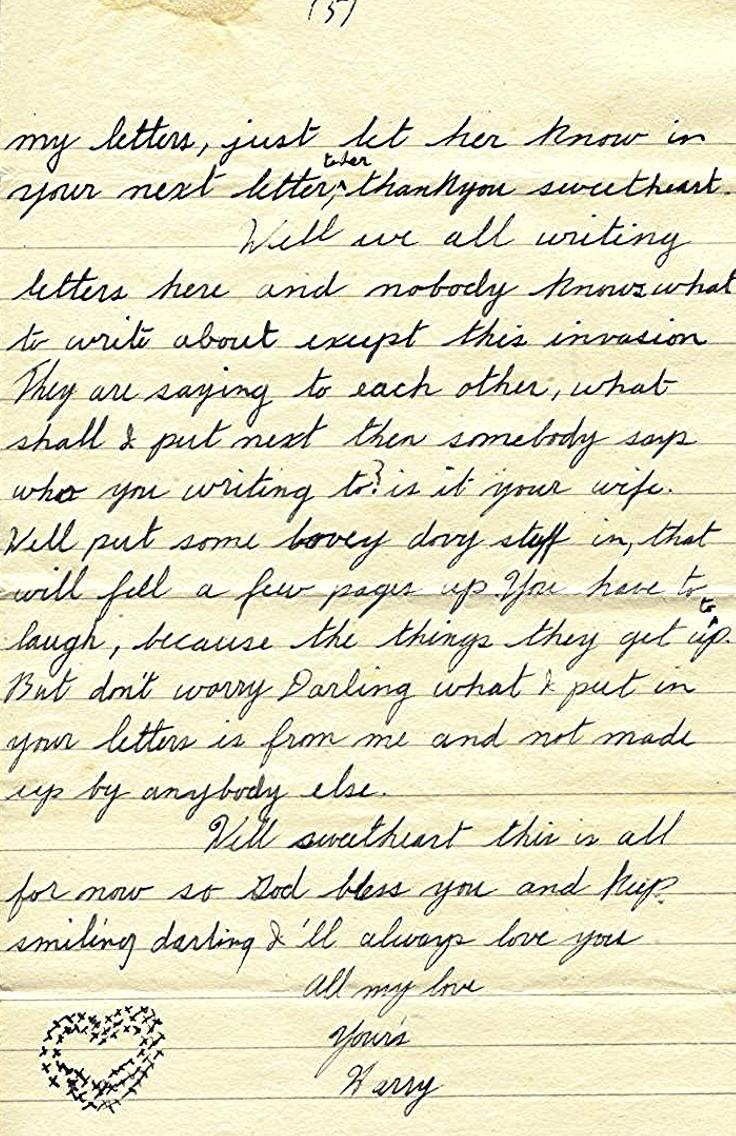 (5)
my letters, just let her know in
to her
your next letter, ^ thankyou sweetheart.
Well we all writing
letters here and nobody knows what
to write about except this invasion
They are saying to each other, what
shall I put next then somebody says
who you writing to? is it your wife.
Well put some lovey dovy stuff in, that
will fell a few pages up. You have to
to
laugh, because the things they get ^ up.
But don't worry Darling what I put in
your letters is from me and not made
up by anybody else.
Well sweetheart this is all
for now so God bless you and keep
smiling darling I'll always love you
All my love
Your's
Harry